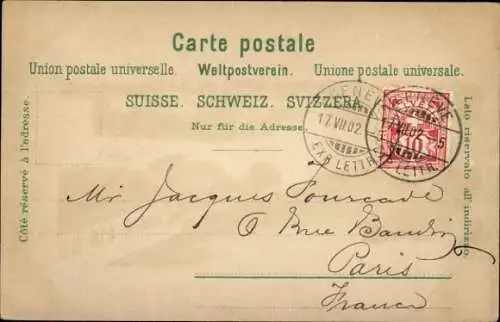 Carte postale
Union postale universelle. Weltpostverein. Unione postale universale.
SUISSE. SCHWEIZ. SVIZZERA.
Nur für die Adresse.
Côté réservé à l'adresse.
Lato riservato all'indirizzo.
17.VII.02
EXP. LETTR.
VII.02 5
LETTR.
10
Mr Jacques Fourcade
6 Rue Baudin
Paris
France